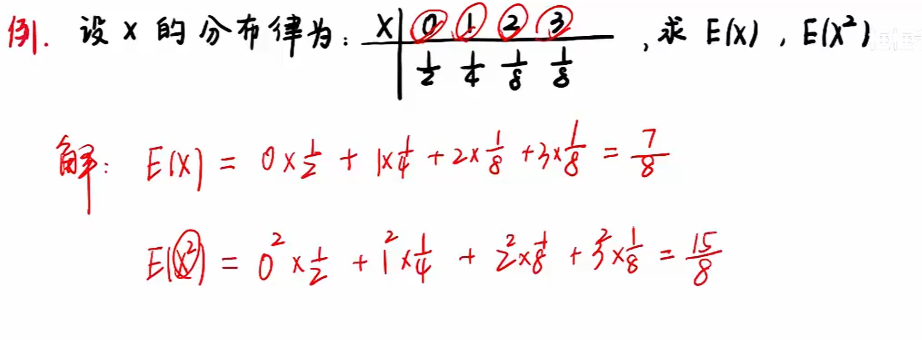 例. 设 X 的分布律为: X | 0 1 2 3 , 求 E(X) , E(X²)
1/2 1/4 1/8 1/8
解: E(X) = 0×1/2 + 1×1/4 + 2×1/8 + 3×1/8 = 7/8
E(X²) = 0²×1/2 + 1²×1/4 + 2²×1/8 + 3²×1/8 = 15/8